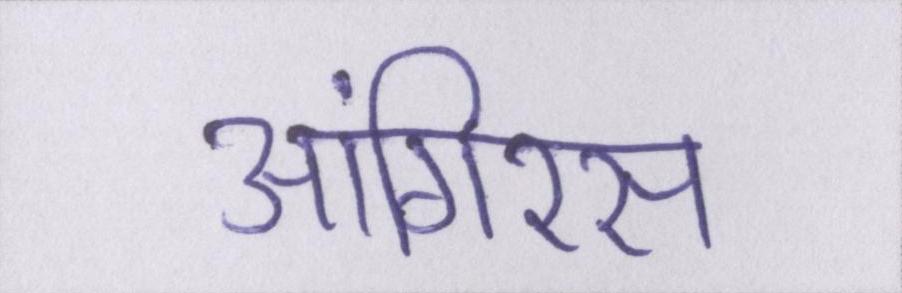 आंगिरस